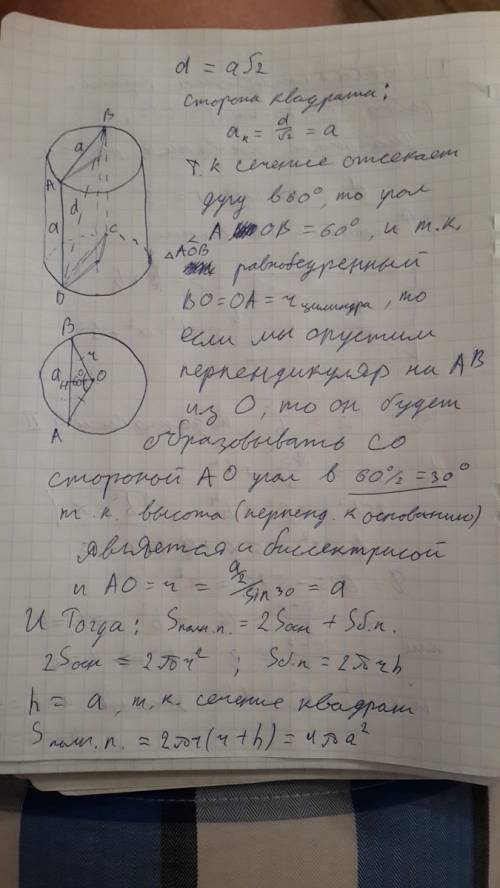 d = a√2
сторона квадрата:
aₖ = d/√2 = a
т.к сечение отсекает
дугу в 60°, то угол
∠A OB = 60°, и т.к.
△AOB
равнобедренный
BO = OA = r цилиндра, то
если мы опустим
перпендикуляр на AB
из O, то он будет
образовывать со
стороной AO угол в 60°/2 = 30°
т.к. высота (перпенд. к основанию)
является и биссектрисой
и AO = r = a/2/sin 30 = a
И Тогда: Sполн.п. = 2Sосн + Sб.п.
2Sосн = 2πr² ; Sб.п = 2πrh
h = a, т.к. сечение квадрат
Sполн.п. = 2πr(r+h) = 4πa²
B
a
A
d
a
C
D
B
r
a
H
60°
O
A